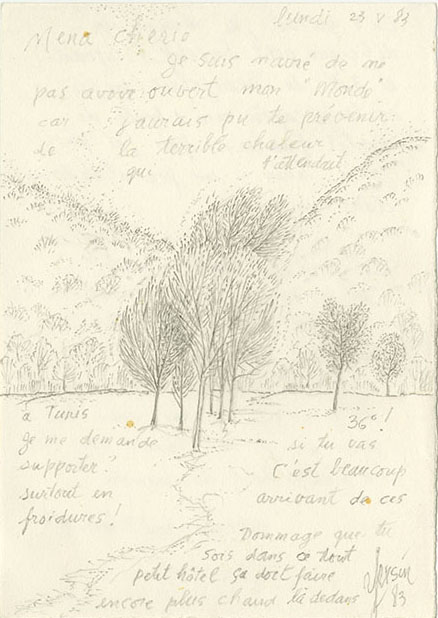 lundi 23 V 83
Mena chérie
Je suis navré de ne
pas avoir ouvert mon "Monde"
car j'aurais pu te prévenir
de la terrible chaleur
qui t'attendait
à Tunis 36°!
Je me demande si tu vas
supporter? C'est beaucoup
surtout en arrivant de ces
froidures!
Dommage que tu
sois dans ce tout
petit hôtel ça doit faire
encore plus chaud là dedans
83